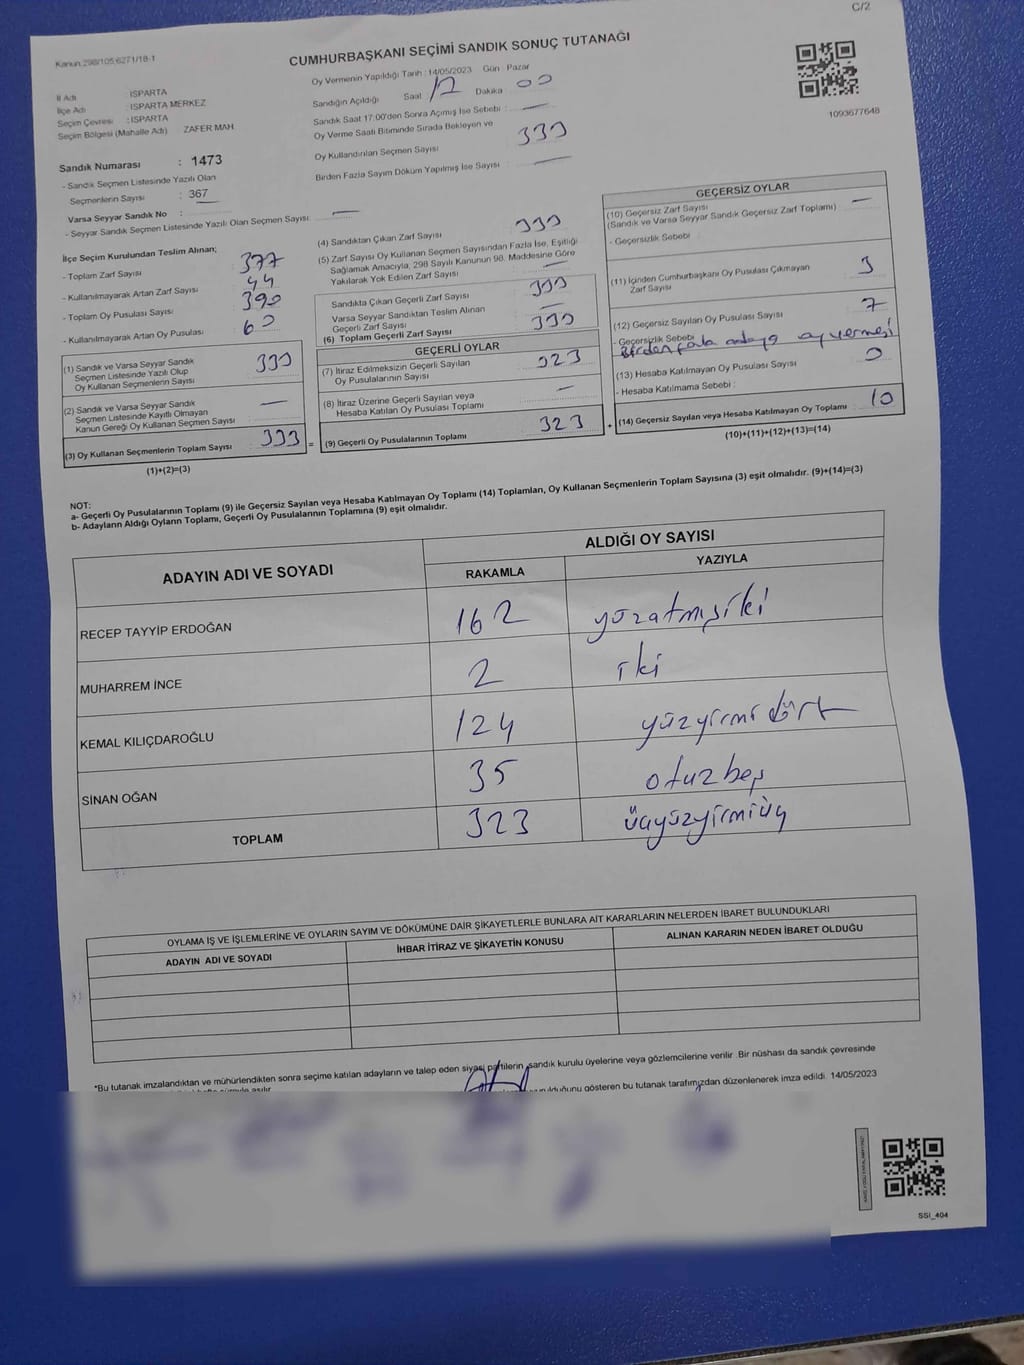 C/2
Kanun:298/105.6271/18-1
CUMHURBAŞKANI SEÇİMİ SANDIK SONUÇ TUTANAĞI
İl Adı : ISPARTA
İlçe Adı : ISPARTA MERKEZ
Seçim Çevresi : ISPARTA
Seçim Bölgesi (Mahalle Adı) ZAFER MAH.
Oy Vermenin Yapıldığı Tarih : 14/05/2023 Gün : Pazar
Sandığın Açıldığı Saat : 17 Dakika : 00
Sandık Saat 17:00'den Sonra Açılmış İse Sebebi : —
Oy Verme Saati Bitiminde Sırada Bekleyen ve
Oy Kullandırılan Seçmen Sayısı 333
Birden Fazla Sayım Döküm Yapılmış İse Sayısı —
1093677648
Sandık Numarası : 1473
- Sandık Seçmen Listesinde Yazılı Olan
Seçmenlerin Sayısı : 367
Varsa Seyyar Sandık No :
- Seyyar Sandık Seçmen Listesinde Yazılı Olan Seçmen Sayısı : —
İlçe Seçim Kurulundan Teslim Alınan;
- Toplam Zarf Sayısı 377
- Kullanılmayarak Artan Zarf Sayısı 44
- Toplam Oy Pusulası Sayısı 390
- Kullanılmayarak Artan Oy Pusulası
(1) Sandık ve Varsa Seyyar Sandık
Seçmen Listesinde Yazılı Olup
Oy Kullanan Seçmenlerin Sayısı 333
(2) Sandık ve Varsa Seyyar Sandık
Seçmen Listesinde Kayıtlı Olmayan
Kanun Gereği Oy Kullanan Seçmen Sayısı —
(3) Oy Kullanan Seçmenlerin Toplam Sayısı 333 =
(1)+(2)=(3)
(4) Sandıktan Çıkan Zarf Sayısı 333
(5) Zarf Sayısı Oy Kullanan Seçmen Sayısından Fazla İse, Eşitliği
Sağlamak Amacıyla, 298 Sayılı Kanunun 98. Maddesine Göre
Yakılarak Yok Edilen Zarf Sayısı —
Sandıkta Çıkan Geçerli Zarf Sayısı 333
Varsa Seyyar Sandıktan Teslim Alınan
Geçerli Zarf Sayısı —
(6) Toplam Geçerli Zarf Sayısı 333
GEÇERLİ OYLAR
(7) İtiraz Edilmeksizin Geçerli Sayılan
Oy Pusulalarının Sayısı 323
(8) İtiraz Üzerine Geçerli Sayılan veya
Hesaba Katılan Oy Pusulası Toplamı —
(9) Geçerli Oy Pusulalarının Toplamı 323 +
GEÇERSİZ OYLAR
(10) Geçersiz Zarf Sayısı
(Sandık ve Varsa Seyyar Sandık Geçersiz Zarf Toplamı) —
- Geçersizlik Sebebi :
(11) İçinden Cumhurbaşkanı Oy Pusulası Çıkmayan
Zarf Sayısı 3
(12) Geçersiz Sayılan Oy Pusulası Sayısı 7
- Geçersizlik Sebebi : Birden fazla adaya oy vermesi
(13) Hesaba Katılmayan Oy Pusulası Sayısı 0
- Hesaba Katılmama Sebebi :
(14) Geçersiz Sayılan veya Hesaba Katılmayan Oy Toplamı 10
(10)+(11)+(12)+(13)=(14)
NOT:
a- Geçerli Oy Pusulalarının Toplamı (9) ile Geçersiz Sayılan veya Hesaba Katılmayan Oy Toplamı (14) Toplamları, Oy Kullanan Seçmenlerin Toplam Sayısına (3) eşit olmalıdır. (9)+(14)=(3)
b- Adayların Aldığı Oyların Toplamı, Geçerli Oy Pusulalarının Toplamına (9) eşit olmalıdır.
ADAYIN ADI VE SOYADI
ALDIĞI OY SAYISI
RAKAMLA YAZIYLA
RECEP TAYYİP ERDOĞAN 162 yüzatmışiki
MUHARREM İNCE 2 iki
KEMAL KILIÇDAROĞLU 124 yüzyirmidört
SİNAN OĞAN 35 otuzbeş
TOPLAM 323 üçyüzyirmiüç
OYLAMA İŞ VE İŞLEMLERİNE VE OYLARIN SAYIM VE DÖKÜMÜNE DAİR ŞİKAYETLERLE BUNLARA AİT KARARLARIN NELERDEN İBARET BULUNDUKLARI
ADAYIN ADI VE SOYADI
İHBAR İTİRAZ VE ŞİKAYETİN KONUSU
ALINAN KARARIN NEDEN İBARET OLDUĞU
*Bu tutanak imzalandıktan ve mühürlendikten sonra seçime katılan adayların ve talep eden siyasi partilerin sandık kurulu üyelerine veya gözlemcilerine verilir. Bir nüshası da sandık çevresinde
gösteren bu tutanak tarafımızdan düzenlenerek imza edildi. 14/05/2023
SSI_404